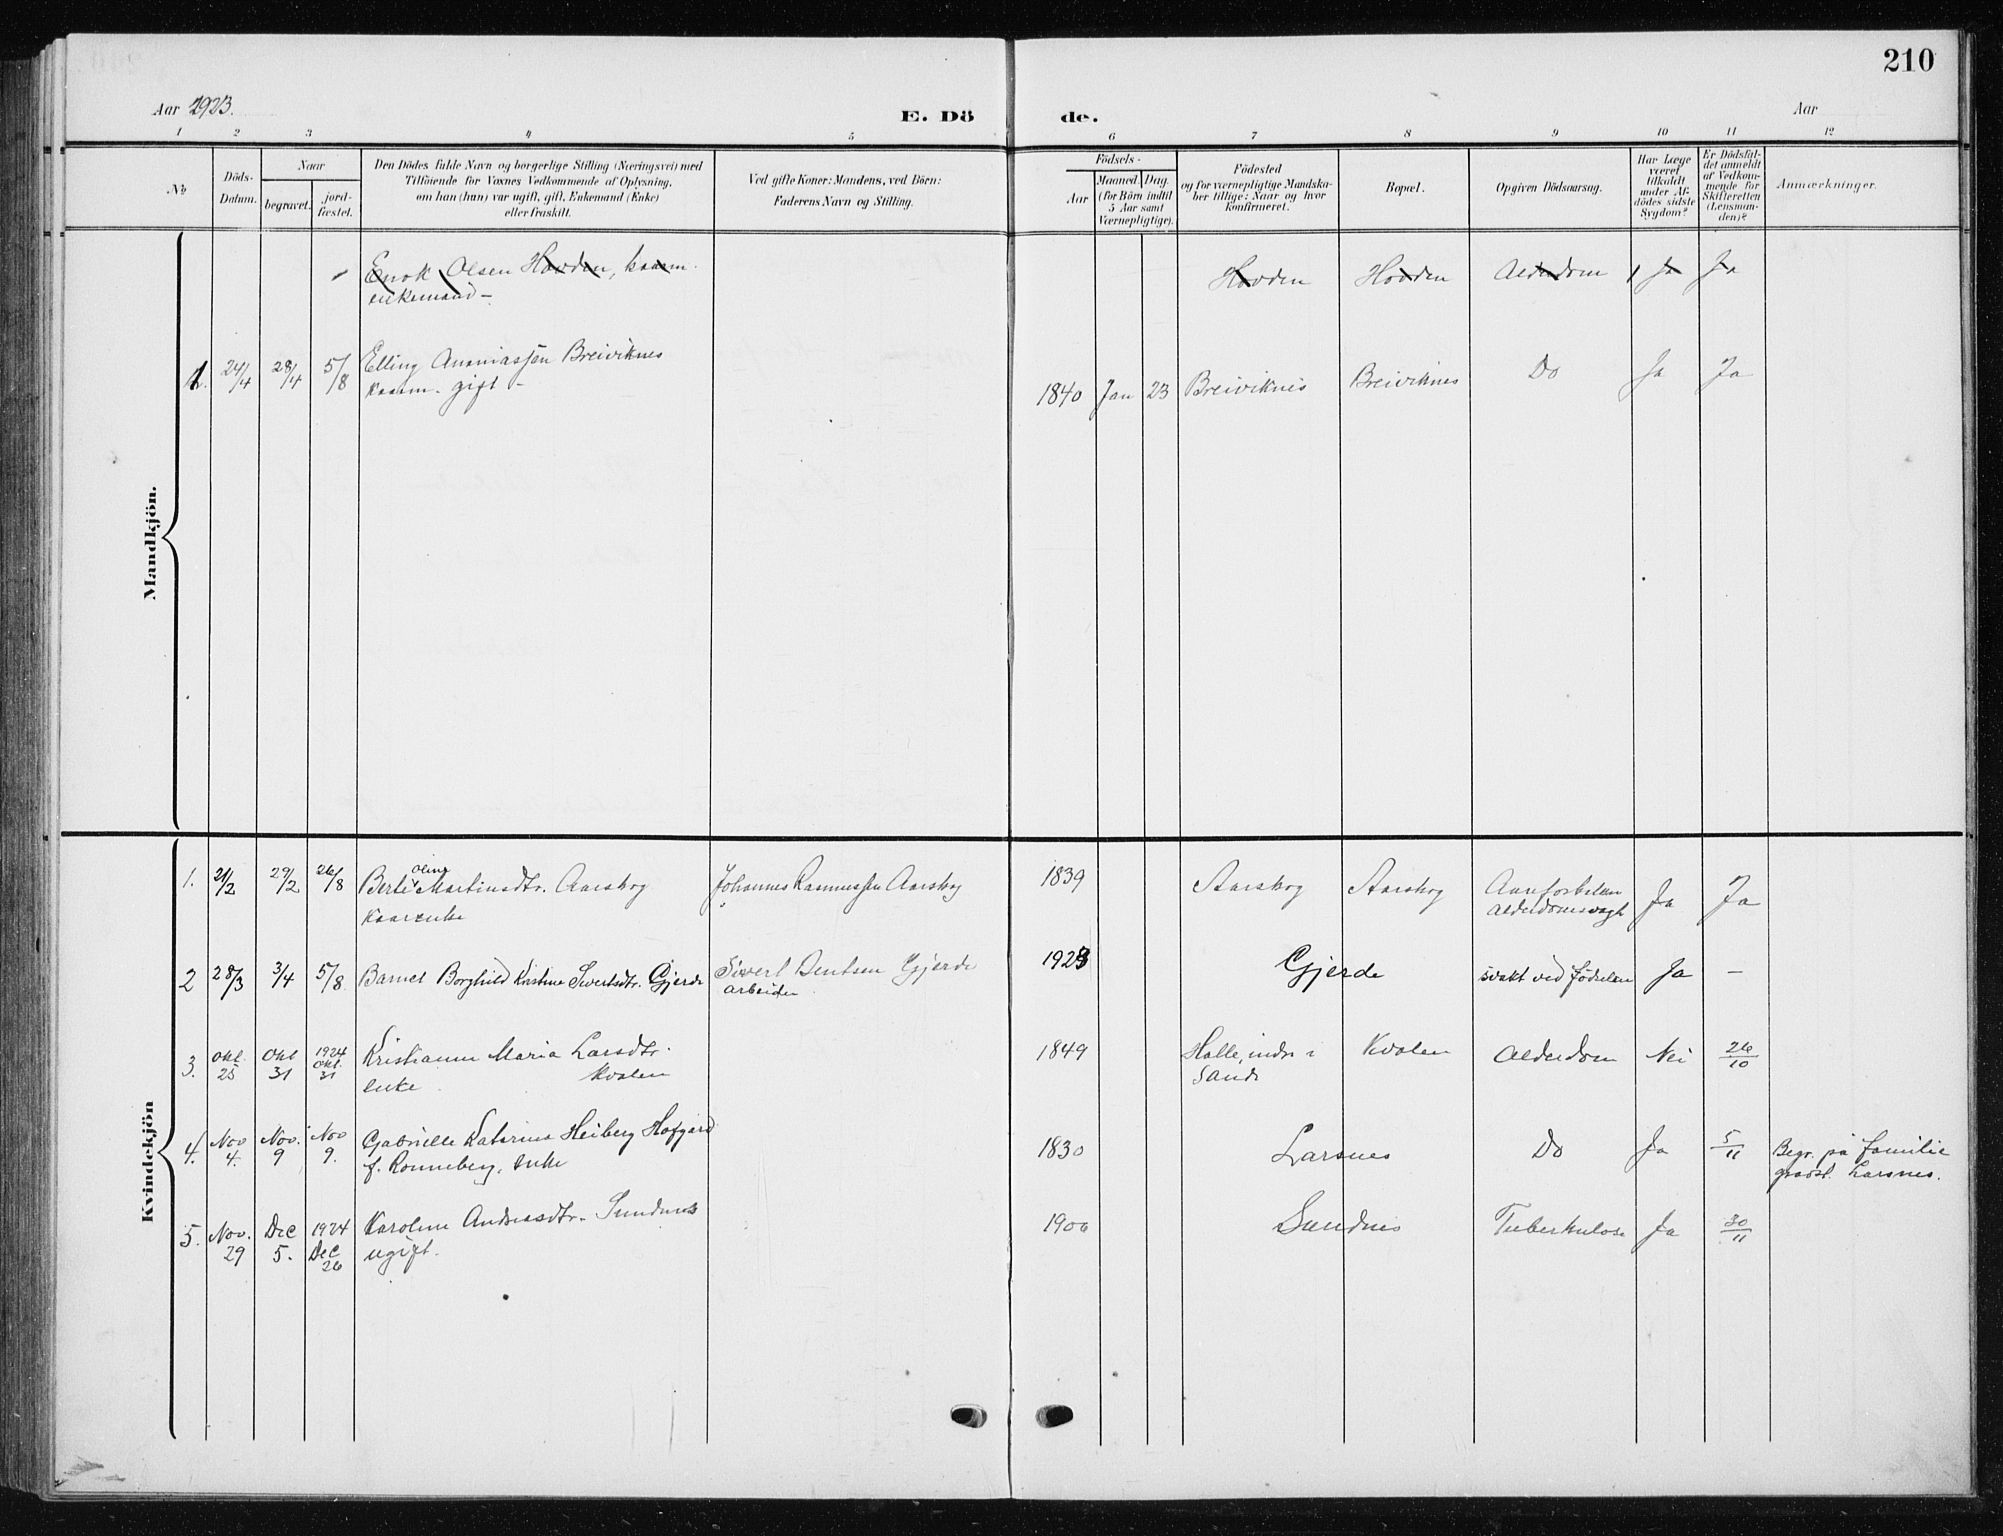 210
Aar 1923.
E. Dö de.
Aar
1 2 3 4 5 6 7 8 9 10 11 12
No
Döds-
Datum.
Naar
begravet.
jord-
fæstet.
Den Dödes fulde Navn og borgerlige Stilling (Næringsvei) med
Tilföiende for Voxnes Vedkommende af Oplysning,
om han (hun) var ugift, gift, Enkemand (Enke)
eller fraskilt.
Ved gifte Koner: Mandens, ved Börn:
Faderens Navn og Stilling.
Födsels-
Aar
Maaned. Dag.
(for Börn indtil
5 Aar samt
Værnepligtige).
Födested
og for værnepligtige Mandska-
ber tillige: Naar og hvor
konfirmeret.
Bopæl.
Opgiven Dödsaarsag.
Har Læge
været
tilkaldt
under Af-
dödes sidste
Sygdom?
Er Dödsfal-
det anmeldt
af Vedkom-
mende for
Skifteretten
(Lensman-
den)?
Anmærkninger.
Mandkjön.
Enok Olsen Hovden, kaarm. Hovden Hovden Alderdom Ja Ja
enkemand -
1. 24/4 28/4 5/8 Elling Ananiassen Breiviknes 1840 Jan 23 Breiviknes Breiviknes Do Ja Ja
kaarm. gift -
Kvindekjön
Oline
1. 21/2 29/2 26/8 Berte Martinsdtr. Aarskog Johannes Rasmussen Aarskog 1839 Aarskog Aarskog Ja Ja
Kaarenke
2 28/3 3/4 5/8 Barnet Borghild Kristine Sivertsdtr. Gjerde Sivert Bentsen Gjerde 1923 Gjerde svakt ved fødselen Ja —
arbeider
3. Okt. 25 Okt 31 1924 Okt. 31 Kristianne Maria Larsdtr. 1849 Halle, indre i Kvalen Alderdom Nei 26/10
enke. Kvalen Sande
4. Nov 4. Nov. 9 Nov 9. Gabrielle Katarina Heiberg Hofgard 1830 Larsnes Do Ja 5/11 Begr. på familie
f. Ronneberg, enke gravst. Larsnes.
5. Nov. 29 Dec 5. 1924 Dec 26 Karoline Andreasdtr. Sundnes 1900 Sundnes Tuberkulose Ja 30/11
ugift.